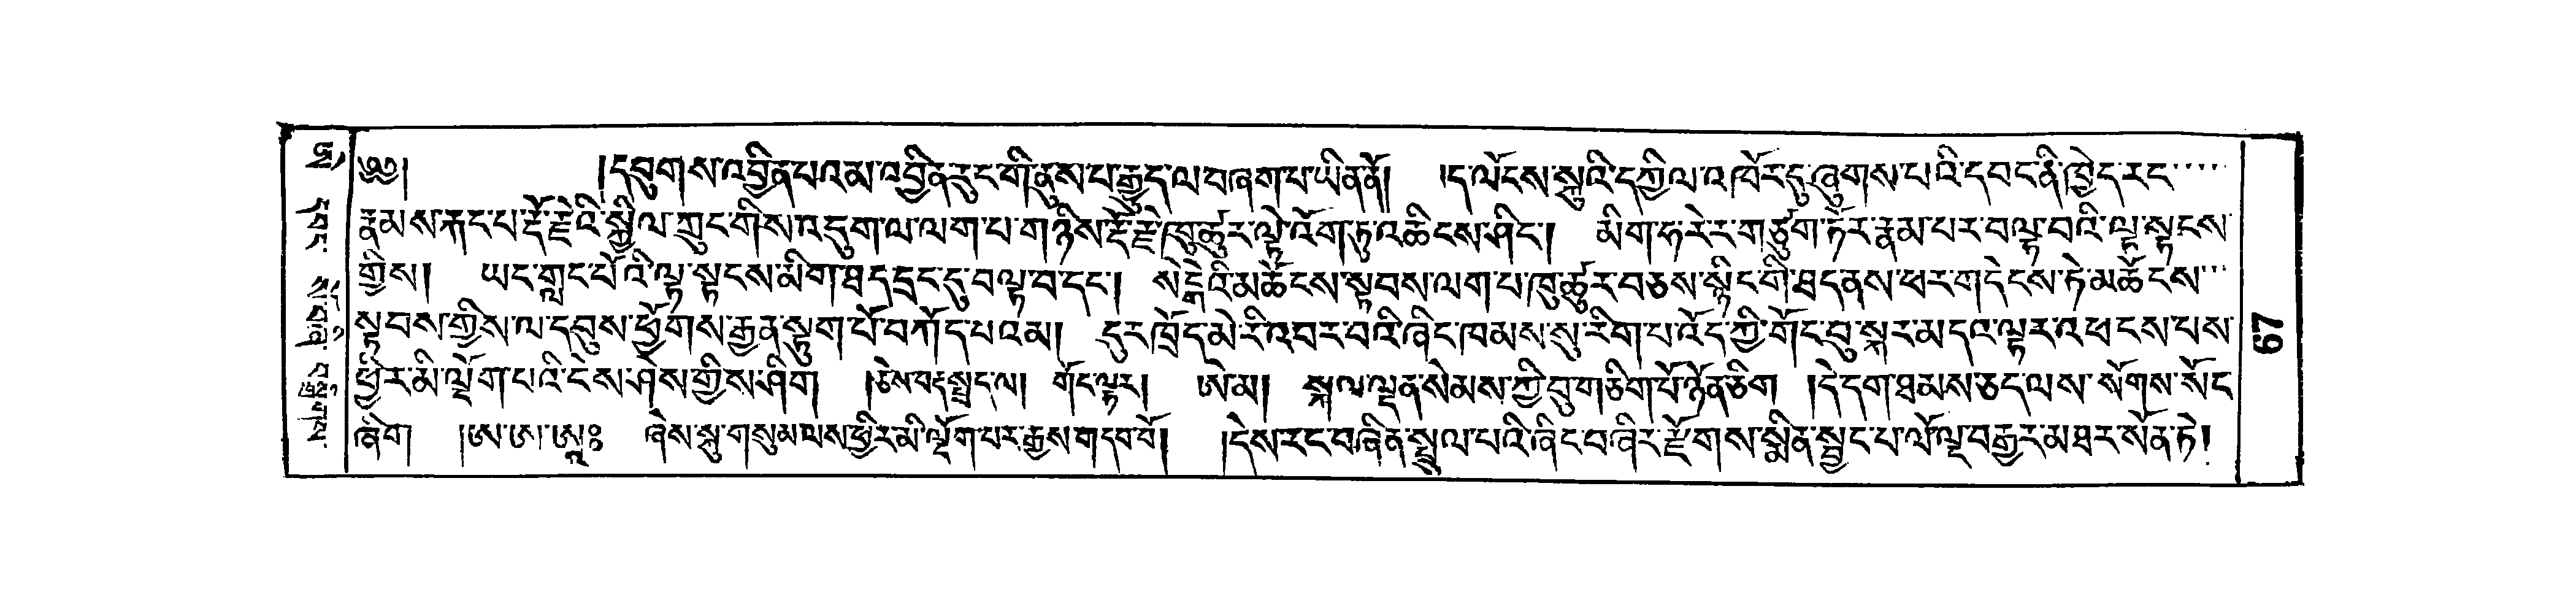 ༄༅། །དབུགས་འབྱིན་པའམ་འབྱིན་རུང་གི་ནུས་པ་རྒྱུད་ལ་བཞག་པ་ཡིན་ནོ། །ད་ལོངས་སྐུའི་དཀྱིལ་འཁོར་དུ་ཞུགས་པའི་དབང་ནི་ཁྱེད་རང་....
རྣམས་རྐང་པ་རྡོ་རྗེའི་སྐྱིལ་ཀྲུང་གིས་འདུག་ལ་ལག་པ་གཉིས་རྡོ་རྗེ་ཁུ་ཚུར་ལྟེ་འོག་ཏུ་འཆིངས་ཤིང་། མིག་ཧ་རེ་ར་གཙུག་ཏོར་རྣམ་པར་བལྟ་བའི་ལྟ་སྟངས་
གྱིས། ཡང་གླང་པོའི་ལྟ་སྟངས་མིག་ཐད་དྲང་དུ་བལྟ་བ་དང་། སེངྒེའི་མཆོངས་སྟབས་ལག་པ་ཁུ་ཚུར་བཅས་སྙིང་གི་ཐད་ནས་ཕར་གདེངས་ཏེ་མཆོངས་...
སྟབས་གྱིས་ལ་དབུས་ཕྱོགས་རྒྱན་སྟུག་པོ་བཀོད་པའམ། དུར་ཁྲོད་མེ་རི་འབར་བའི་ཞིང་ཁམས་སུ་རིག་པ་འོད་ཀྱི་གོང་བུ་སྐར་མདའ་ལྟར་འཕངས་པས་
ཕྱིར་མི་ལྡོག་པའི་ངེས་ཤེས་གྱིས་ཤིག །ཅེས་བརྡ་སྤྲད་ལ། གོང་ལྟར། ཨེ་མ། སྐལ་ལྡན་སེམས་ཀྱི་བུ་གཅིག་པོ་ཉོན་ཅིག །དེ་དག་ཐམས་ཅད་ལས་སོགས་སོང་
ཞིག །ཨ་ཨ་ཨཱཿ ཞེས་སྐུ་གསུམ་ལས་ཕྱིར་མི་ལྡོག་པར་རྒྱས་གདབ་བོ། །དེས་རང་བཞིན་སྤྲུལ་པའི་ཞིང་བཞིར་རྫོགས་སྨིན་སྦྱང་པ་ལོ་ལྔ་བརྒྱར་མཐར་སོན་ཏེ།